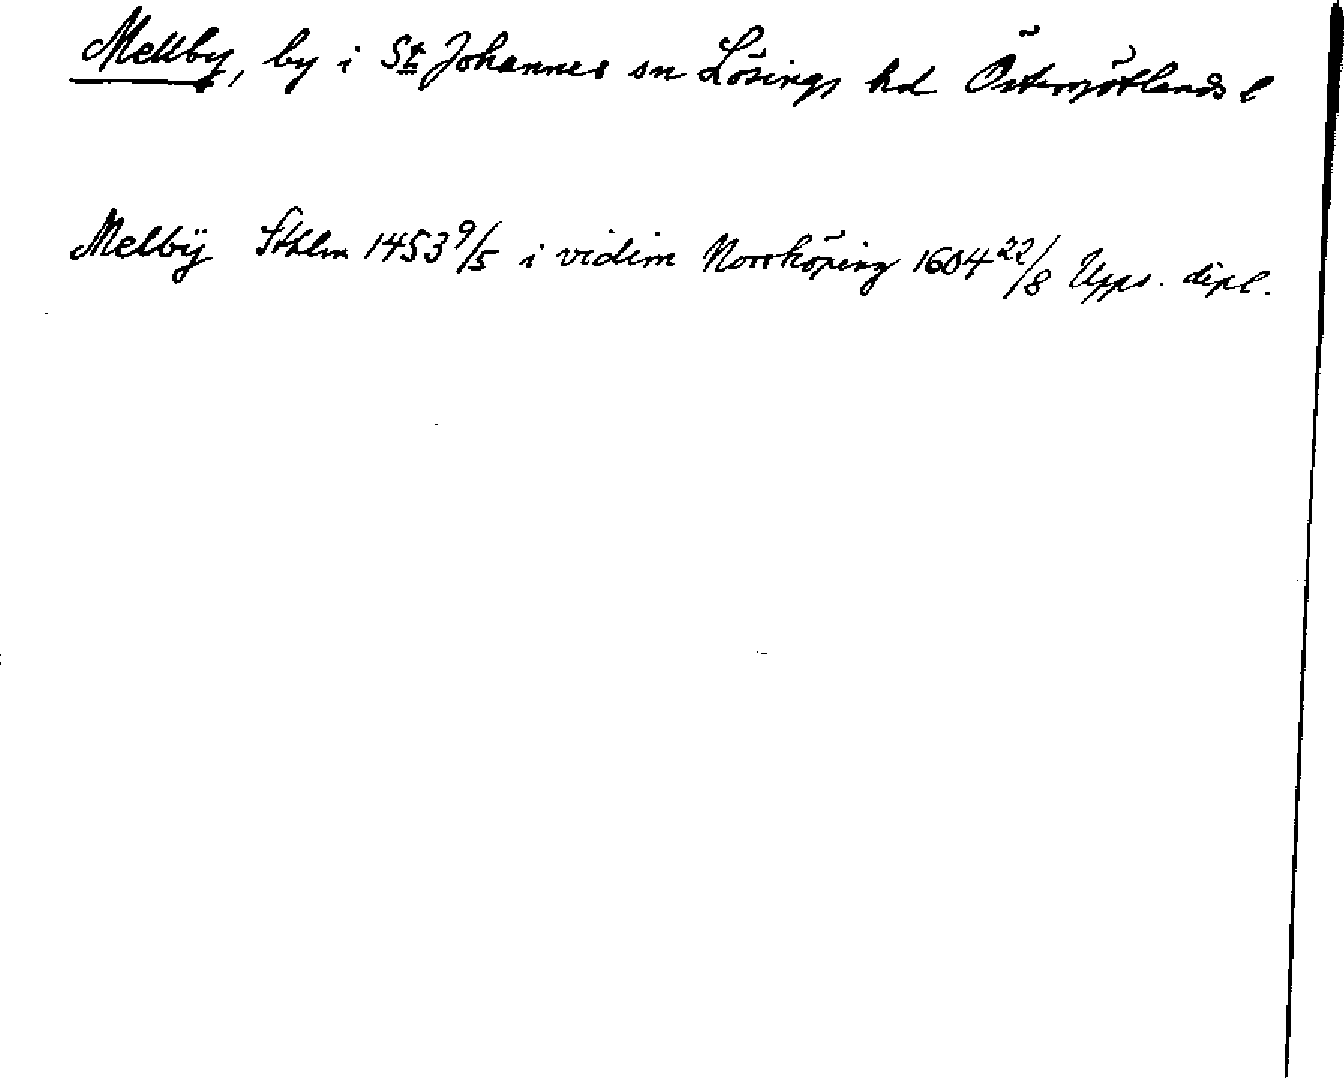 Mellby, by i St Johannes sn Lösings hd Östergötlands l
Melbÿ Sthlm 1453 9/5 i vidim Norrköping 1604 22/8 Upps. dipl.